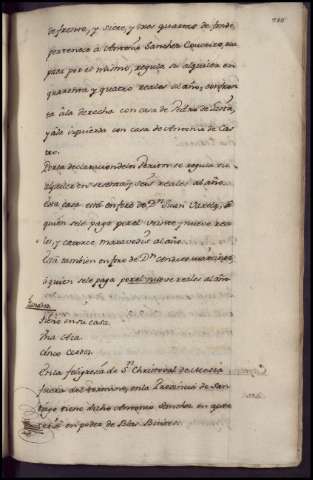 de frente, y siete, y tres quartos de fondo
pertenece à Antonio Sanchez
para por el mismo, regula su alquiler en
quarenta y quatro reales al año, confron
ta â la derecha con casa de
y a la izquierda con casa de Antonia de Cas
tro.
Por la declaracion de los Peritos se regula su
alquiler en sesenta y seis reales al año.
Esta casa està en foro de Dn. Juan Varela, â
quien se le paga por el veinte y nueve rea
les, y catorce maravedis al año
Està tambien en foro de Dn.
à quien se le paga por el nueve reales al año
Tiene en su casa.
Una Aca
Cinco Cerdos
En la feligresia de Sn. Christoval de
fuera del termino, en la Provincia de San
tiago tiene dicho Antonio Sanchez en apar
ceria en poder de Blas